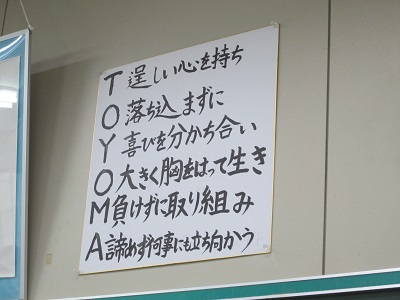 T 逞しい心を持ち
O 落ち込まずに
Y 喜びを分かち合い
O 大きく胸をはって生き
M 負けずに取り組み
A 諦めず何事にも立ち向かう